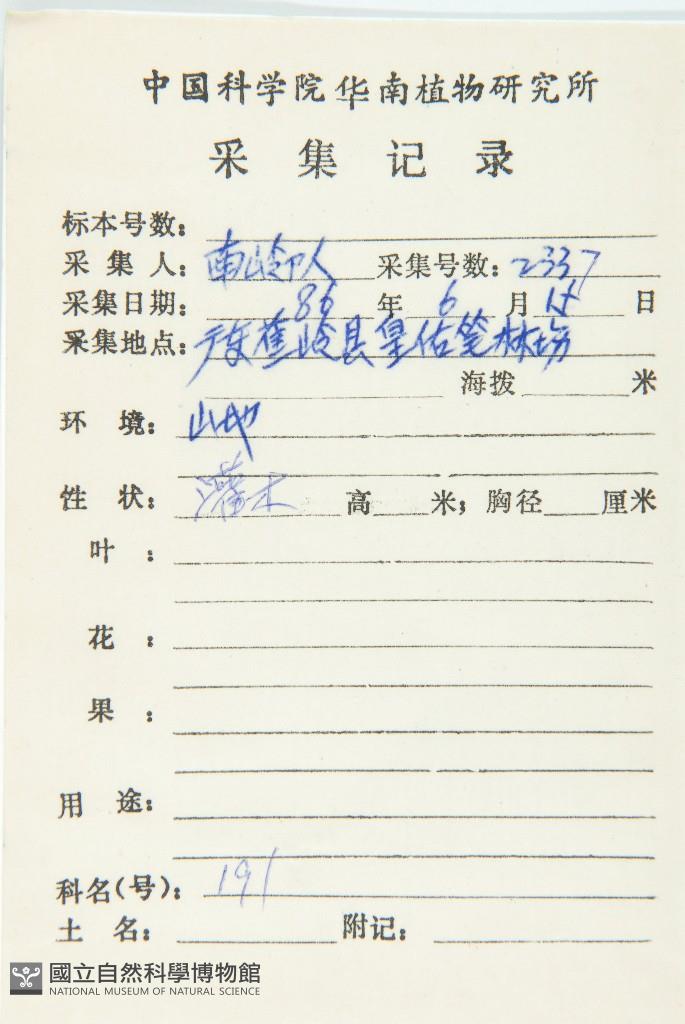 中国科学院华南植物研究所
采集记录
标本号数：
采集人：南岭队 采集号数：2337
采集日期：86年6月18日
采集地点：广东蕉岭县皇佑笔林场
海拨 米
环境：山地
性状：灌木 高 米；胸径 厘米
叶：
花：
果：
用途：
科名(号)：191
土名： 附记：
國立自然科學博物館
NATIONAL MUSEUM OF NATURAL SCIENCE